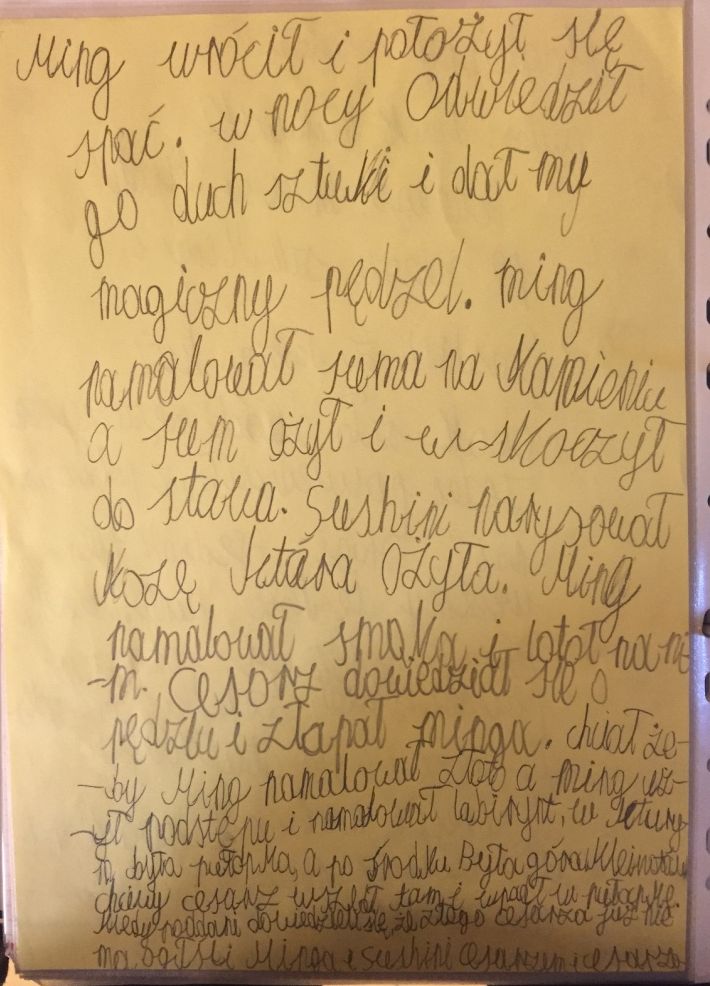 Ming wrócił i położył się
spać. w nocy Odwiedził
go duch sztuki i dał mu
magiczny pędzel. ming
namalował suma na Kamieniu
a sum ożył i wskoczył
do stawu. Sushini narysował
Kozę która Ożyła. Ming
namalował smoka i latał na ni
-m. Cesarz dowiedział się o
pędzlu i złapał minga. chciał że-
-by Ming namalował złoto a ming uż-
-ył podstępu i namalował labirynt, w którym
była pułapka, a po środku Była góra Klejnotów
chciwy cesarz wszedł tam i wpadł w pułapkę.
Kiedy poddani dowiedzieli się, że złego cesarza już nie
ma ogłosili Minga i Sushini Cesarzem i cesarzo